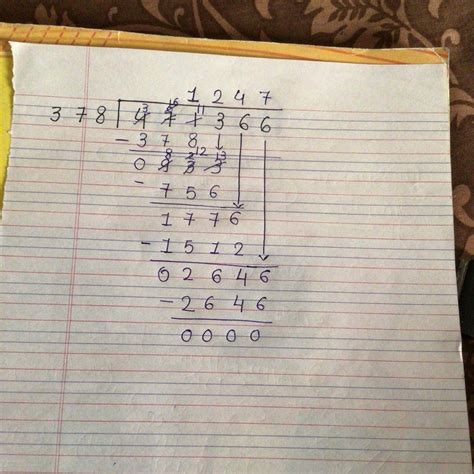 1 2 4 7
3 16 11
3 7 8 4 7 1 3 6 6
- 3 7 8
8 12 13
0 9 3 3
- 7 5 6
1 7 7 6
- 1 5 1 2
0 2 6 4 6
- 2 6 4 6
0 0 0 0